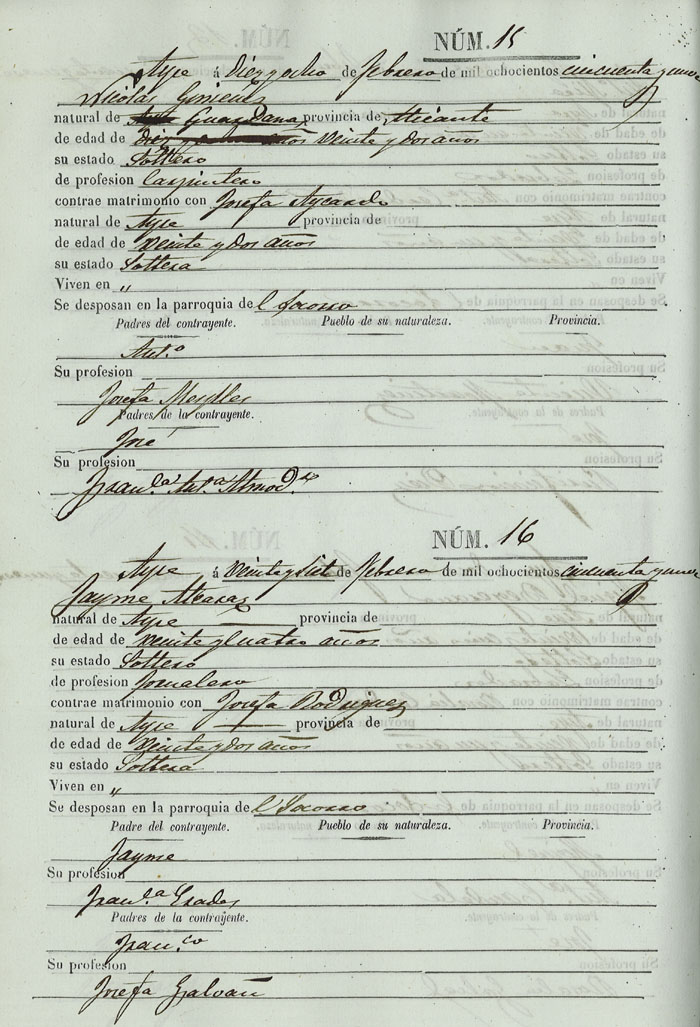 NÚM. 15
Aspe á Diez y ocho de febrero de mil ochocientos cincuenta y nueve
Nicolás Gimenez
natural de Guardamar provincia de Alicante
de edad de años veinte y dos años
su estado Soltero
de profesion Carpintero
contrae matrimonio con Josefa Aycardo
natural de Aspe provincia de
de edad de veinte y dos años
su estado Soltera
Viven en „
Se desposan en la parroquia del Socorro
Padres del contrayente. Pueblo de su naturaleza. Provincia.
Ant.o
Su profesion
Josefa
Padres de la contrayente.
José
Su profesion
Fran.ca Ant.a Almod.
NÚM. 16
Aspe á veinte y siete de febrero de mil ochocientos cincuenta y nueve
Jayme Alcaraz
natural de Aspe — provincia de
de edad de veinte y cuatro años
su estado Soltero
de profesion Jornalero
contrae matrimonio con Josefa Rodriguez
natural de Aspe — provincia de
de edad de veinte y dos años
su estado Soltera
Viven en „
Se desposan en la parroquia del Socorro
Padre del contrayente. Pueblo de su naturaleza. Provincia.
Jayme
Su profesion
Fran.ca
Padres de la contrayente.
Fran.co
Su profesion
Josefa Galvañ